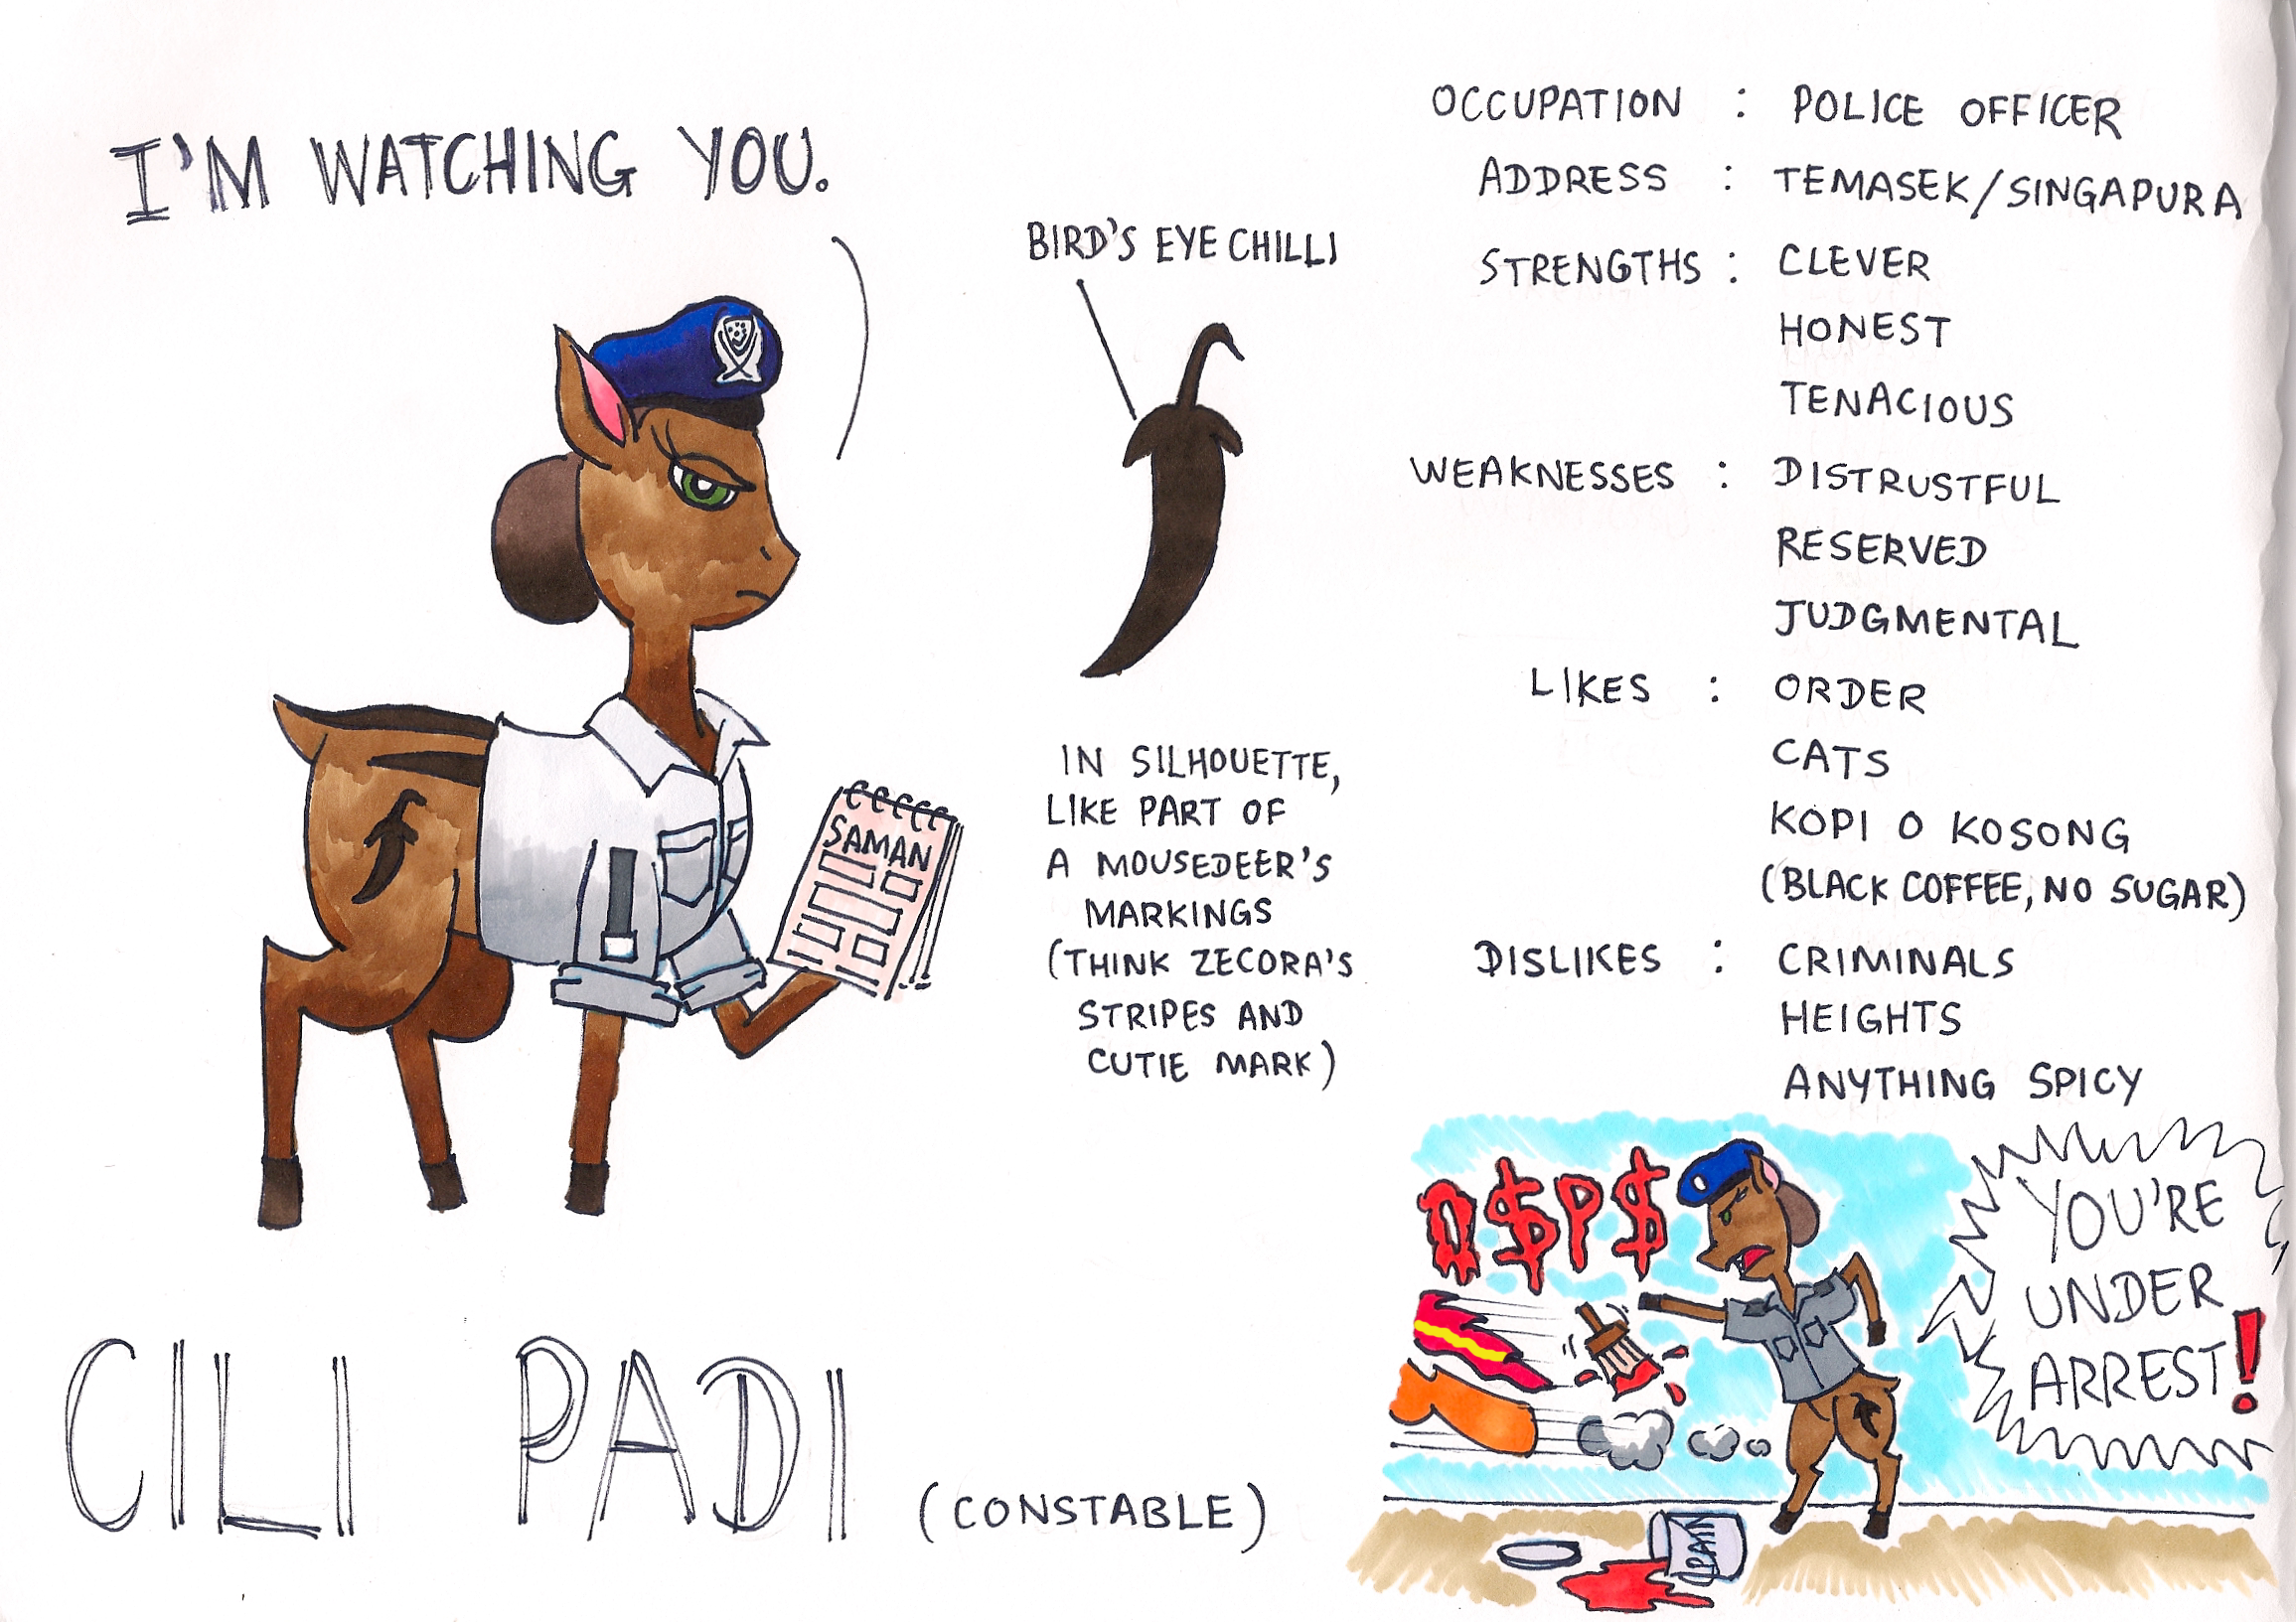 I'M WATCHING YOU.
BIRD'S EYE CHILLI
IN SILHOUETTE,
LIKE PART OF
A MOUSEDEER'S
MARKINGS
(THINK ZECORA'S
STRIPES AND
CUTIE MARK)
SAMAN
CILI PADI (CONSTABLE)
OCCUPATION : POLICE OFFICER
ADDRESS : TEMASEK/SINGAPURA
STRENGTHS : CLEVER
HONEST
TENACIOUS
WEAKNESSES : DISTRUSTFUL
RESERVED
JUDGMENTAL
LIKES : ORDER
CATS
KOPI O KOSONG
(BLACK COFFEE, NO SUGAR)
DISLIKES : CRIMINALS
HEIGHTS
ANYTHING SPICY
O$P$
YOU'RE
UNDER
ARREST!
PAIN